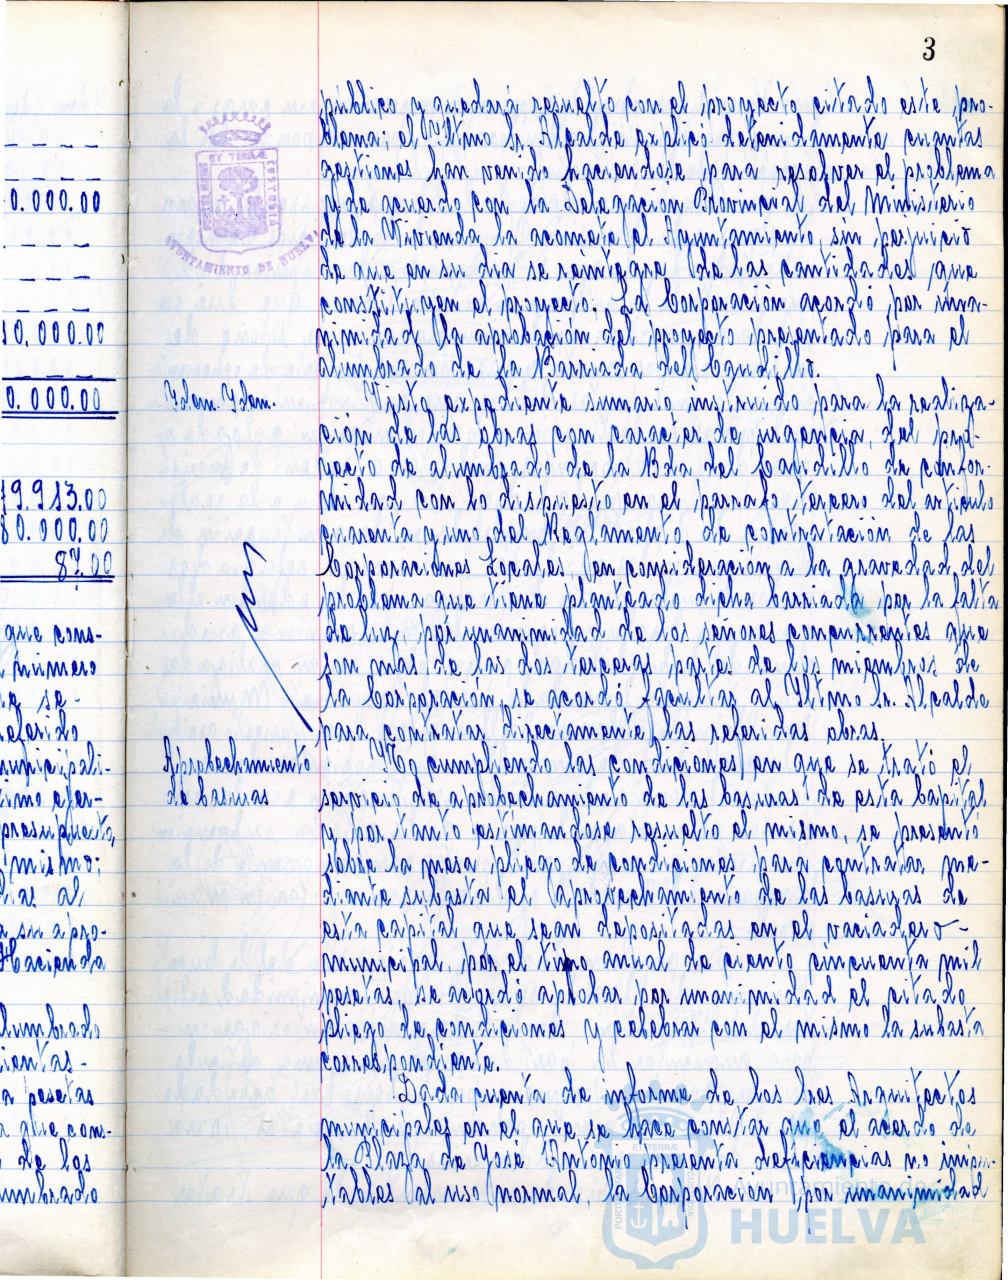 3
público y quedará resuelto con el proyecto citado este pro-
blema; el Yltmo Sr. Alcalde explicó detenidamente cuantas
gestiones han venido haciendose para resolver el problema
y de acuerdo con la Delegación Provincial del Ministerio
de la Vivienda la acomete el Ayuntamiento, sin perjuicio
de que en su dia se reintegre de las cantidades que
constituyen el proyecto. La Corporación acordó por una-
nimidad la aprobación del proyecto presentado para el
alumbrado de la Barriada del Caudillo.
Ydem. Ydem.
Visto expediente sumario instruido para la realiza-
ción de las obras con caracter de urgencia, del pro-
yecto de alumbrado de la Bda del Caudillo de confor-
midad con lo dispuesto en el parrafo tercero del articulo
cuarenta y uno del Reglamento de contratación de las
Corporaciones Locales, en consideración a la gravedad del
problema que tiene planteado dicha barriada por la falta
de luz, por unanimidad de los señores concurrentes que
son mas de las dos terceras partes de los miembros de
la Corporación, se acordó facultar al Yltmo Sr. Alcalde
para contratar directamente las referidas obras.
Aprobechamiento
de basuras
No cumpliendo las condiciones en que se trató el
servicio de aprobechamiento de las basuras de esta Capital
y por tanto estimandose resuelto el mismo, se presentó
sobre la mesa pliego de condiciones para contratar me-
diante subasta el aprovechamiento de las basuras de
esta capital que sean depositadas en el vaciadero-
municipal, por el tipo anual de ciento cincuenta mil
pesetas se acordó aprobar por unanimidad el citado
pliego de condiciones y celebrar con el mismo la subasta
correspondiente.
Dada cuenta de informe de los Sres Arquitectos
municipales en el que se hace constar que el acerdo de
la Plaza de Jose Antonio presenta deficiencias no impu-
tables al uso normal, la Corporación, por unanimidad
0.000.00
10.000.00
0.000.00
19.913.00
80.000.00
87.00
que cons-
numero
se-
referido
municipali-
presupuesto,
mismo;
al
su apro-
Hacienda
lumbrado
ientas-
pesetas
que cons-
de los
umbrado
AYUNTAMIENTO DE HUELVA
Ayuntamiento de
HUELVA